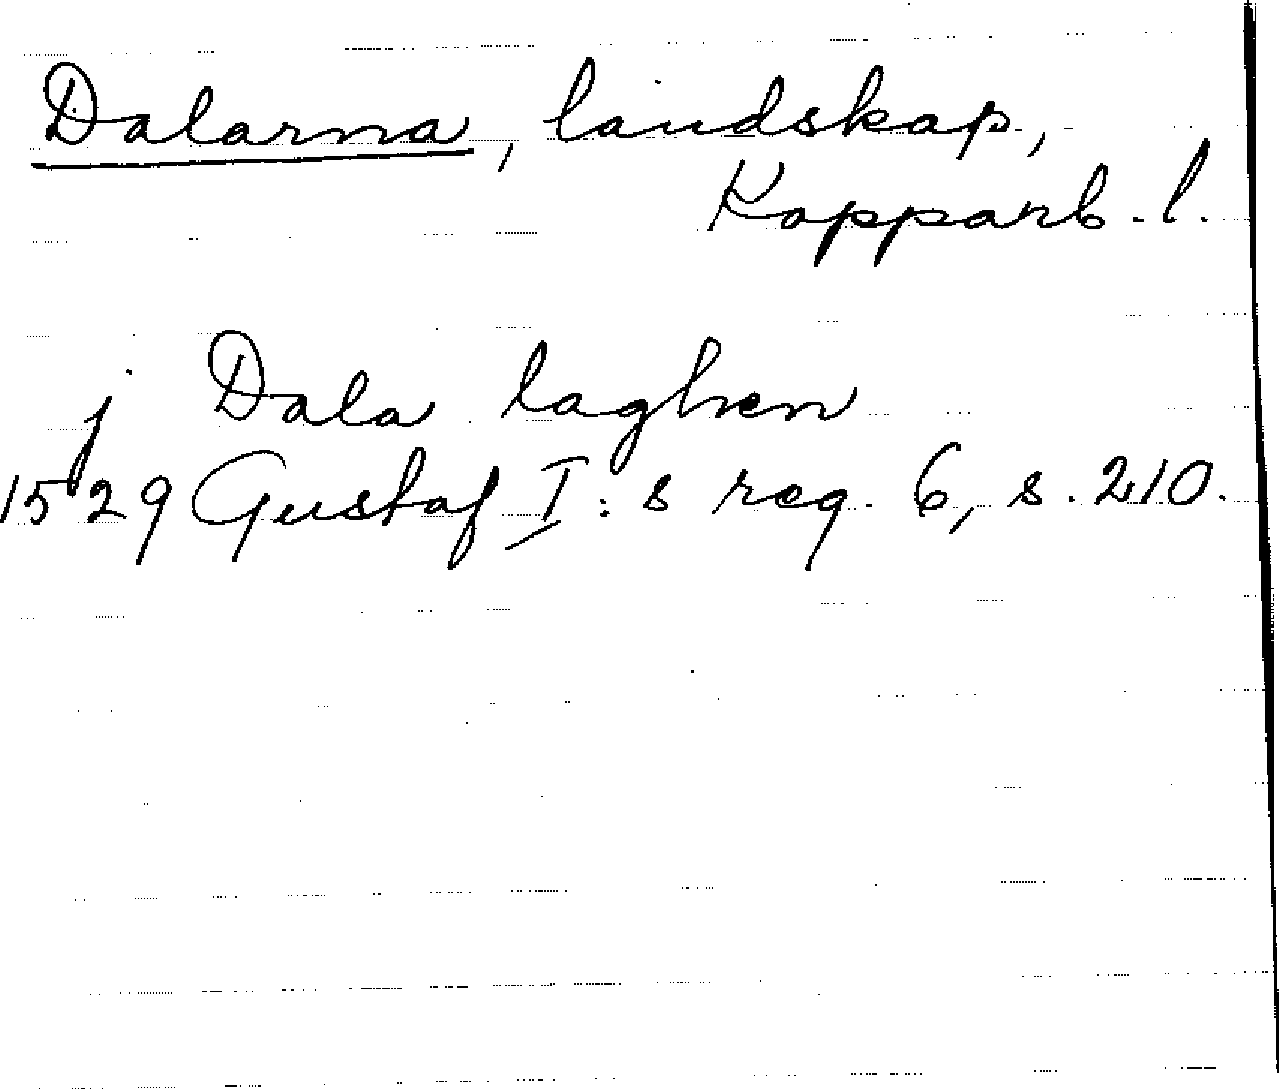 Dalarna, landskap,
Kopparb. l.
j Dala laghen
1529 Gustaf I:s reg. 6, s. 210.